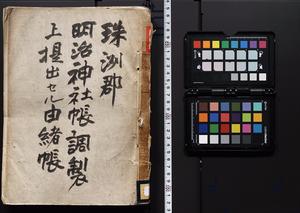 珠洲郡
明治神社帳調製
上提出セル由緒帳